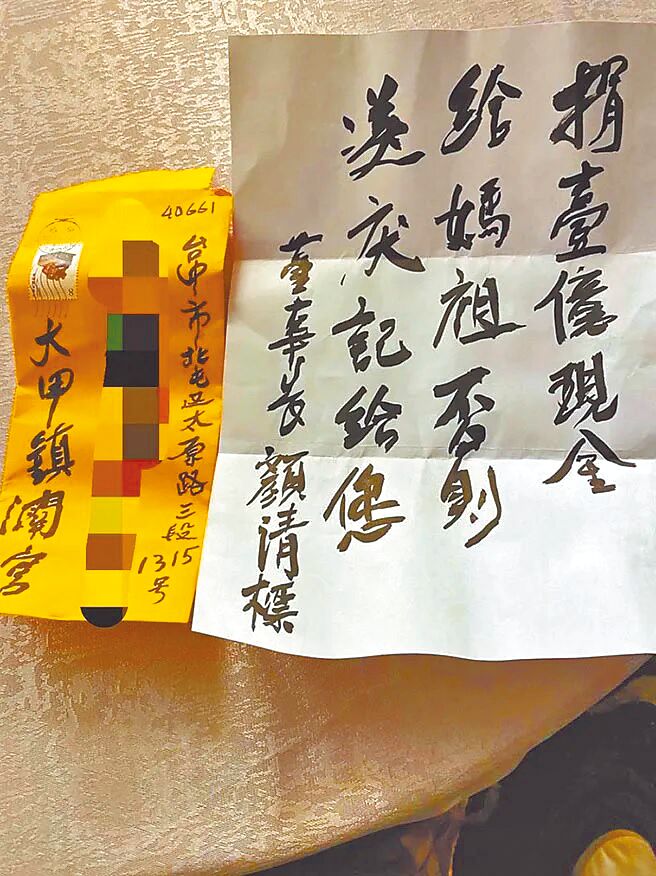 捐壹億現金
給媽祖否則
送庆記給您
董事長顏清標
40661
台中市北屯区太原路三段
1315号
大甲鎮瀾宮